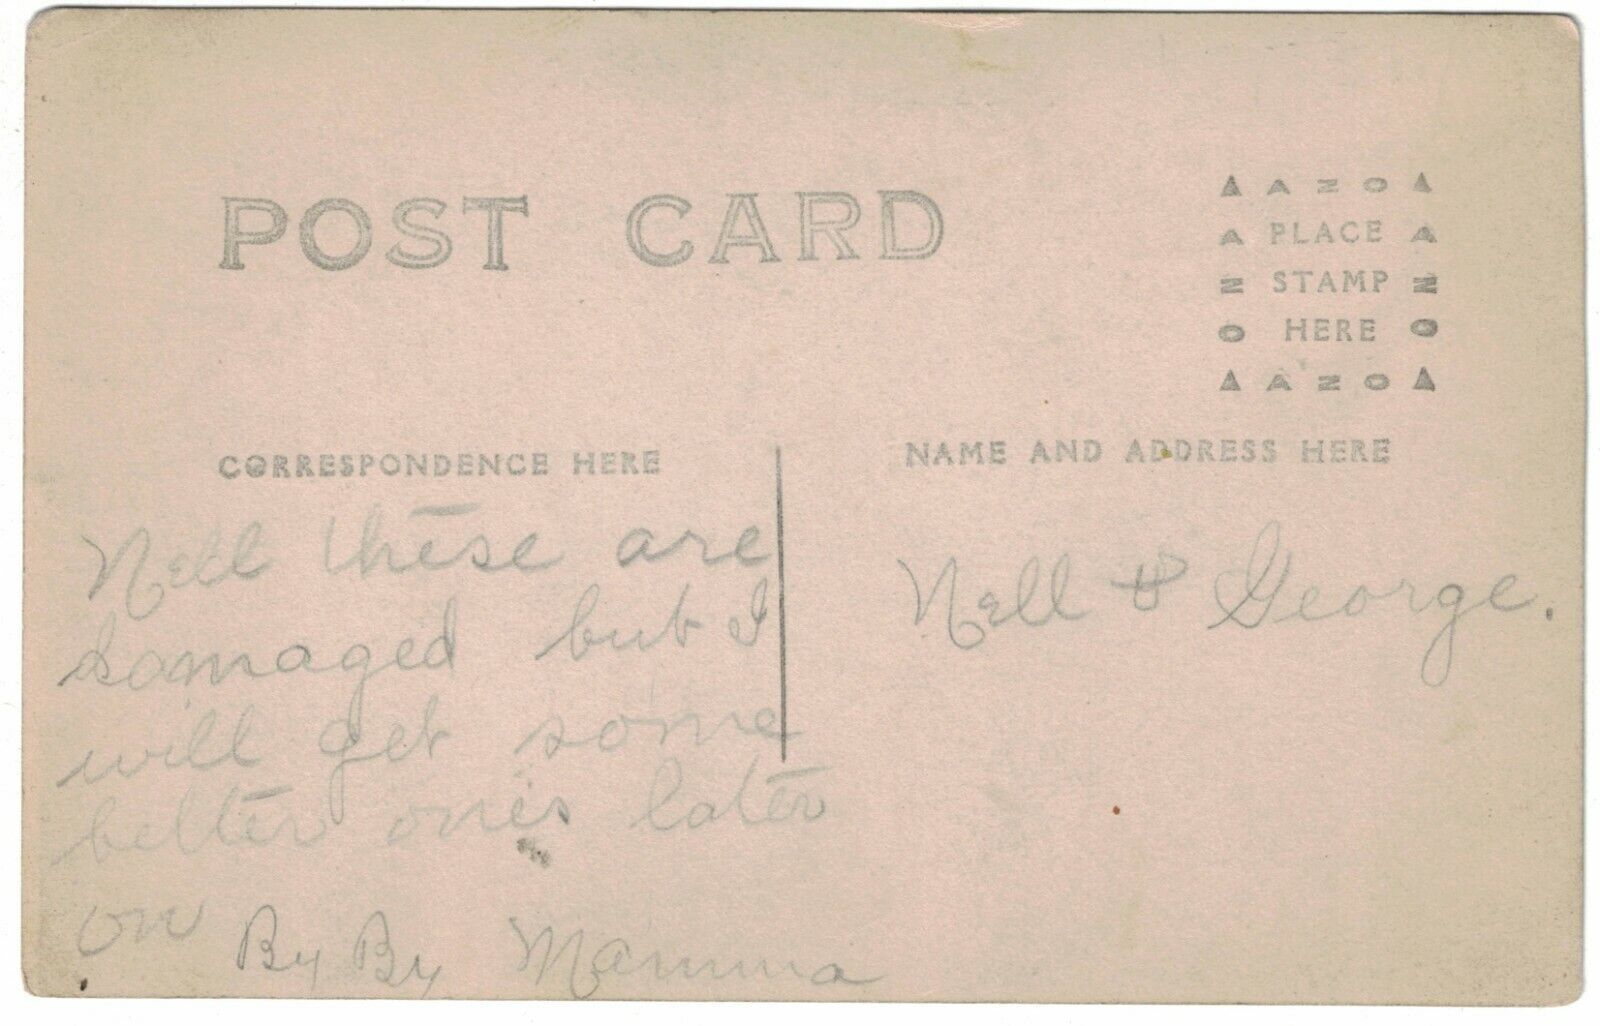 POST CARD
▲ A N O ▲
A PLACE A
N STAMP N
O HERE O
▲ A N O ▲
CORRESPONDENCE HERE
NAME AND ADDRESS HERE
Nell these are
damaged but I
will get some
better ones later
on By By Mamma
Nell & George.